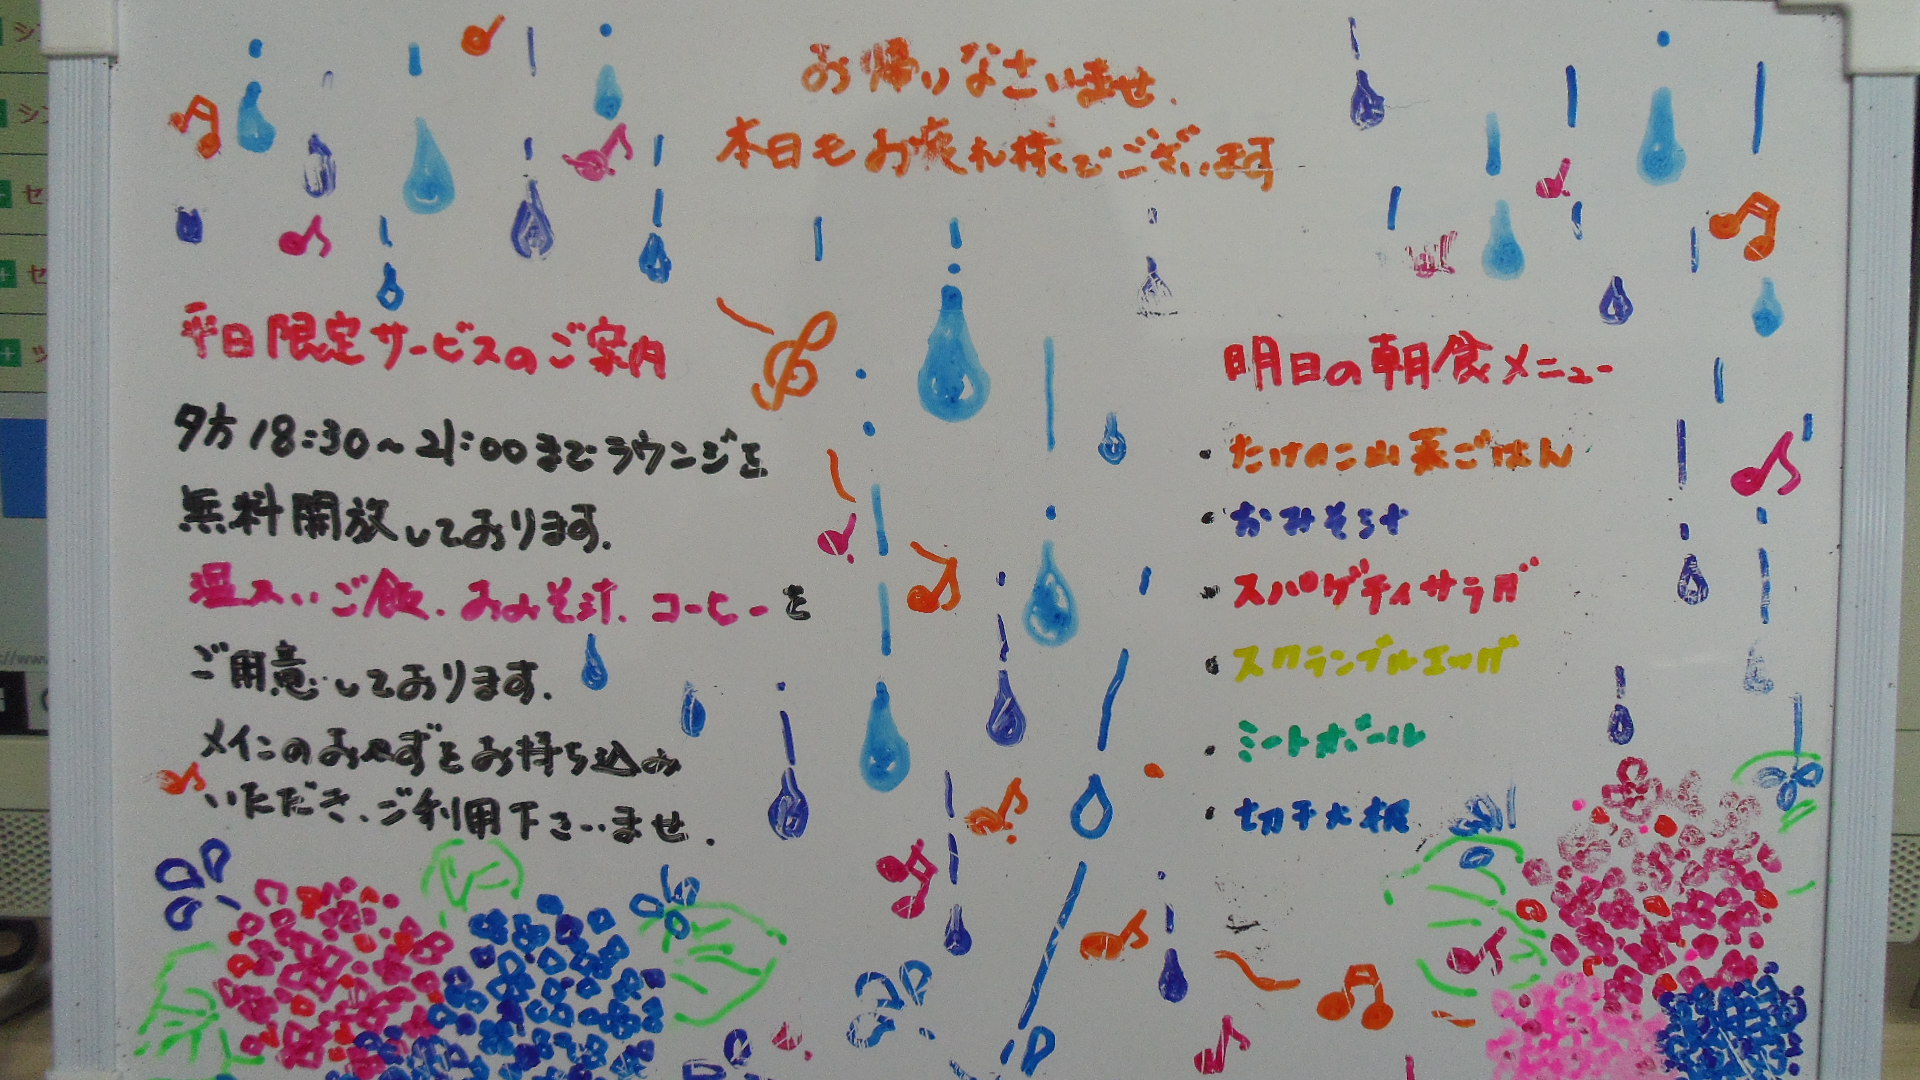 お帰りなさいませ.
本日もお疲れ様でございます
平日限定サービスのご案内
夕方18:30~21:00までラウンジを
無料開放しております.
温かいご飯、おみそ汁、コーヒーを
ご用意しております.
メインのおかずをお持ち込み
いただき、ご利用下さいませ.
明日の朝食メニュー
・たけのこ山菜ごはん
・おみそ汁
・スパゲティサラダ
・スクランブルエッグ
・ミートボール
・切干大根